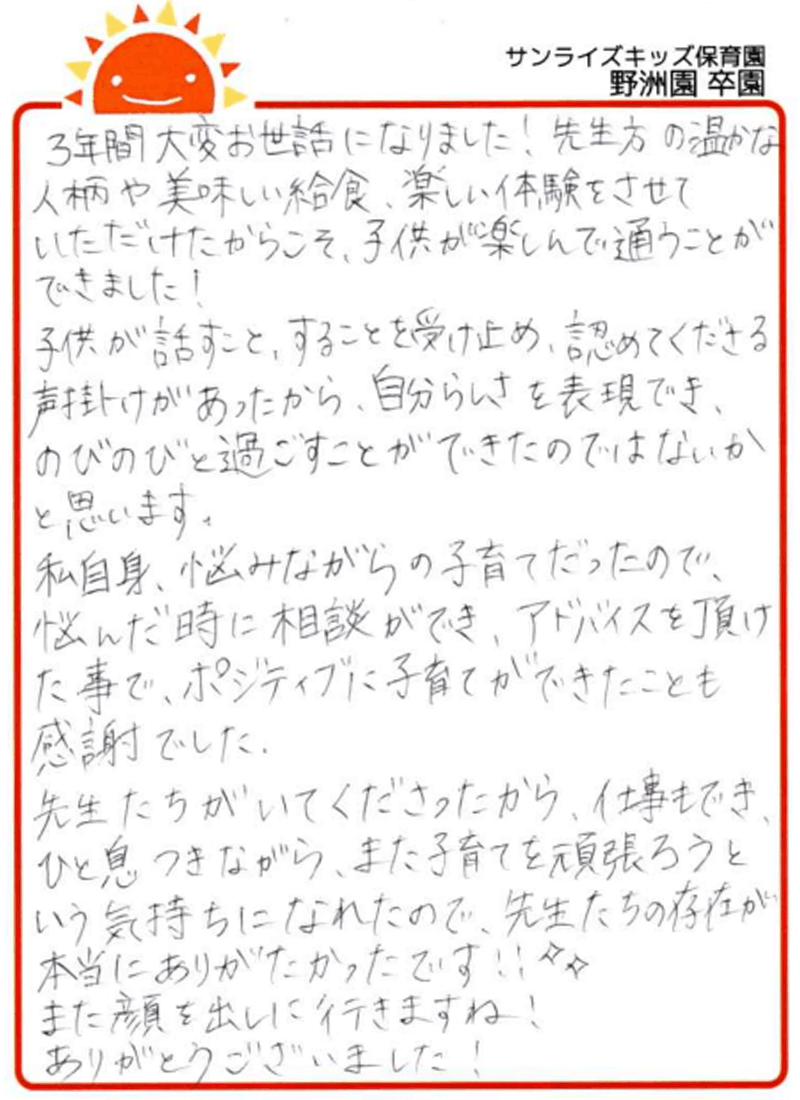 サンライズキッズ保育園
野洲園 卒園
3年間大変お世話になりました！先生方の温かな
人柄や美味しい給食、楽しい体験をさせて
いただけたからこそ、子供が楽しんで通うことが
できました！
子供が話すこと、することを受け止め、認めてくださる
声掛けがあったから、自分らしさを表現でき、
のびのびと過ごすことができたのではないか
と思います。
私自身、悩みながらの子育てだったので、
悩んだ時に相談ができ、アドバイスを頂け
た事で、ポジティブに子育てができたことも
感謝でした。
先生たちがいてくださったから、仕事もでき、
ひと息つきながら、また子育てを頑張ろうと
いう気持ちになれたので、先生たちの存在が
本当にありがたかったです!!✧✧
また顔を出しに行きますね！
ありがとうございました！